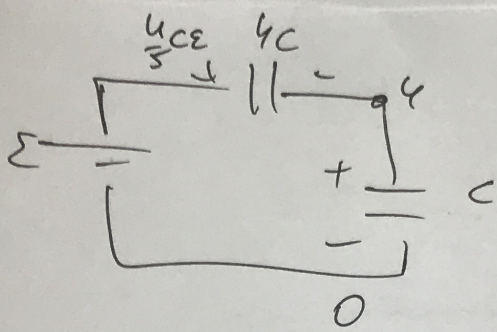 4/5 CE 4C
+ - 4
ε
+ C
-
0